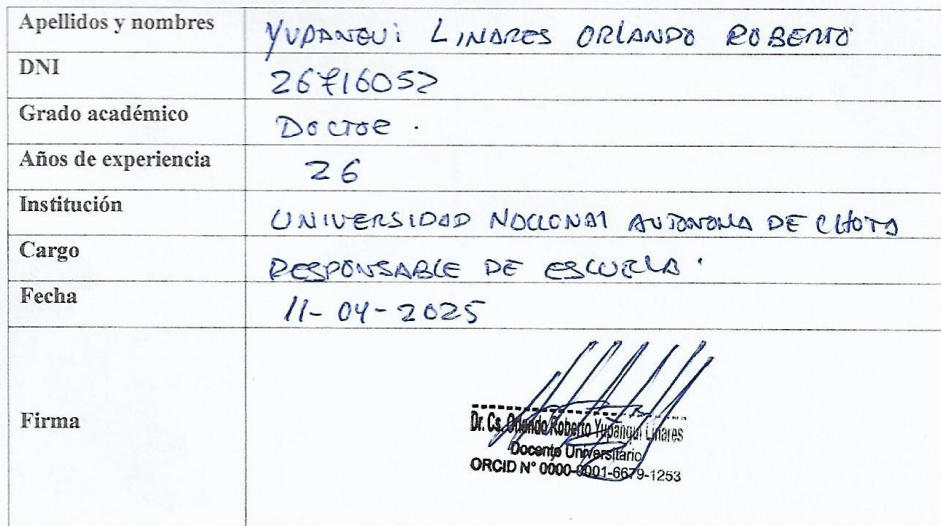 Apellidos y nombres YUPANQUI LINARES ORLANDO ROBERTO
DNI 26716052
Grado académico DOCTOR.
Años de experiencia 26
Institución UNIVERSIDAD NACIONAL AUTONOMA DE CHOTA
Cargo RESPONSABLE DE ESCUELA.
Fecha 11-04-2025
Firma
Dr. Cs. Orlando Roberto Yupanqui Linares
Docente Universitario
ORCID N° 0000-0001-6679-1253